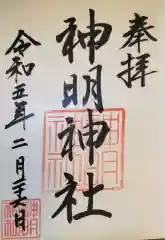 奉拝
神明神社
令和五年二月二十六日